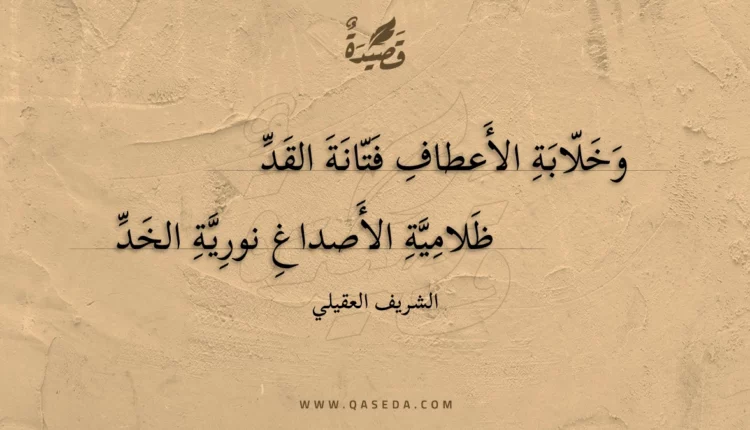 قَصِيدَةٌ
وَخَلّابَةِ الأَعطافِ فَتّانَةَ القَدِّ
ظَلامِيَّةِ الأَصداغِ نورِيَّةِ الخَدِّ
الشريف العقيلي
WWW.QASEDA.COM